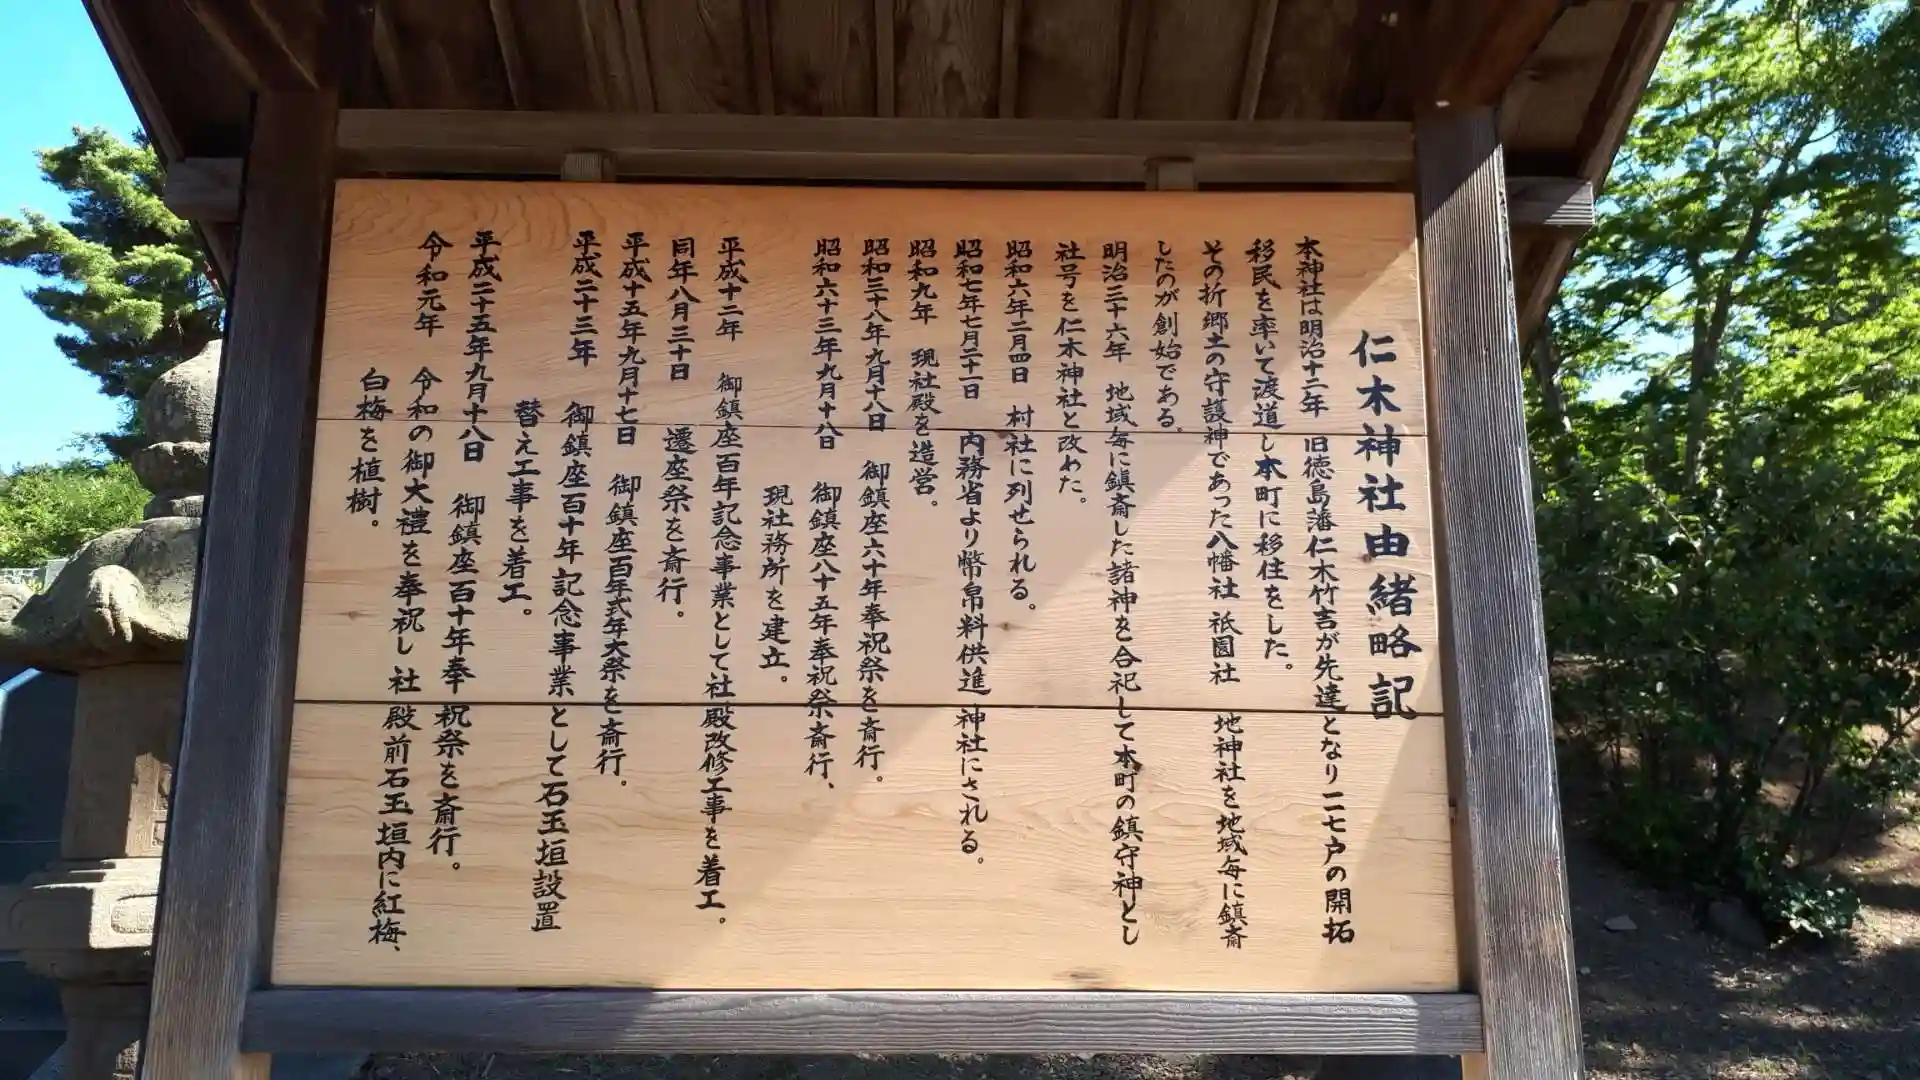 仁木神社由緒略記
本神社は明治十二年 旧徳島藩仁木竹吉が先達となり一一七戸の開拓
移民を率いて渡道し本町に移住をした。
その折郷土の守護神であった八幡社 祇園社 地神社を地域毎に鎮斎
したのが創始である。
明治三十六年 地域毎に鎮斎した諸神を合祀して本町の鎮守神とし
社号を仁木神社と改めた。
昭和六年二月四日 村社に列せられる。
昭和七年七月二十一日 内務省より幣帛料供進 神社にされる。
昭和九年 現社殿を造営。
昭和三十八年九月十八日 御鎮座六十年奉祝祭を斎行。
昭和六十三年九月十八日 御鎮座八十五年奉祝祭斎行、
現社務所を建立。
平成十二年 御鎮座百年記念事業として社殿改修工事を着工。
同年八月三十日 遷座祭を斎行。
平成十五年九月十七日 御鎮座百年式年大祭を斎行。
平成二十三年 御鎮座百十年記念事業として石玉垣設置
替え工事を着工。
平成二十五年九月十八日 御鎮座百十年奉祝祭を斎行。
令和元年 令和の御大禮を奉祝し 社殿前石玉垣内に紅梅、
白梅を植樹。